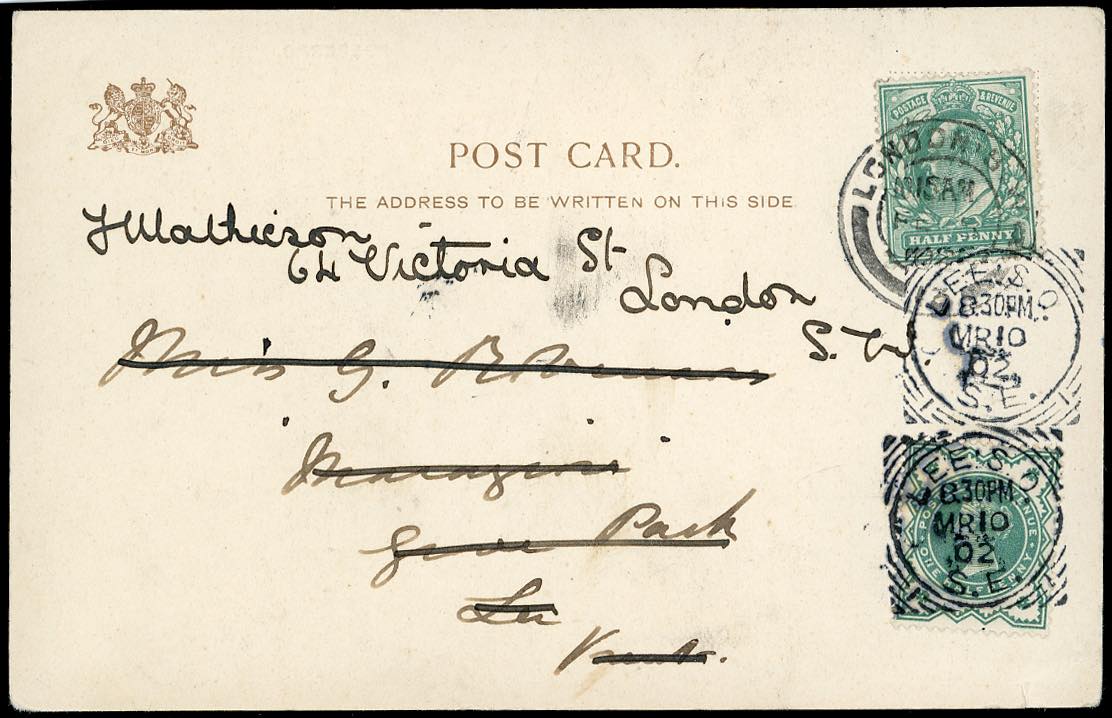 POST CARD.
THE ADDRESS TO BE WRITTEN ON THIS SIDE
POSTAGE & REVENUE
HALF PENNY
LONDON
J Mathieson
64 Victoria St
London
S.W.
Miss G.
Grove Park
Lee
Kent.
LEE S.O.
8.30PM
MR10
02
S.E.
LEE S.O.
8.30PM
MR10
02
S.E.
ONE HALF PENNY